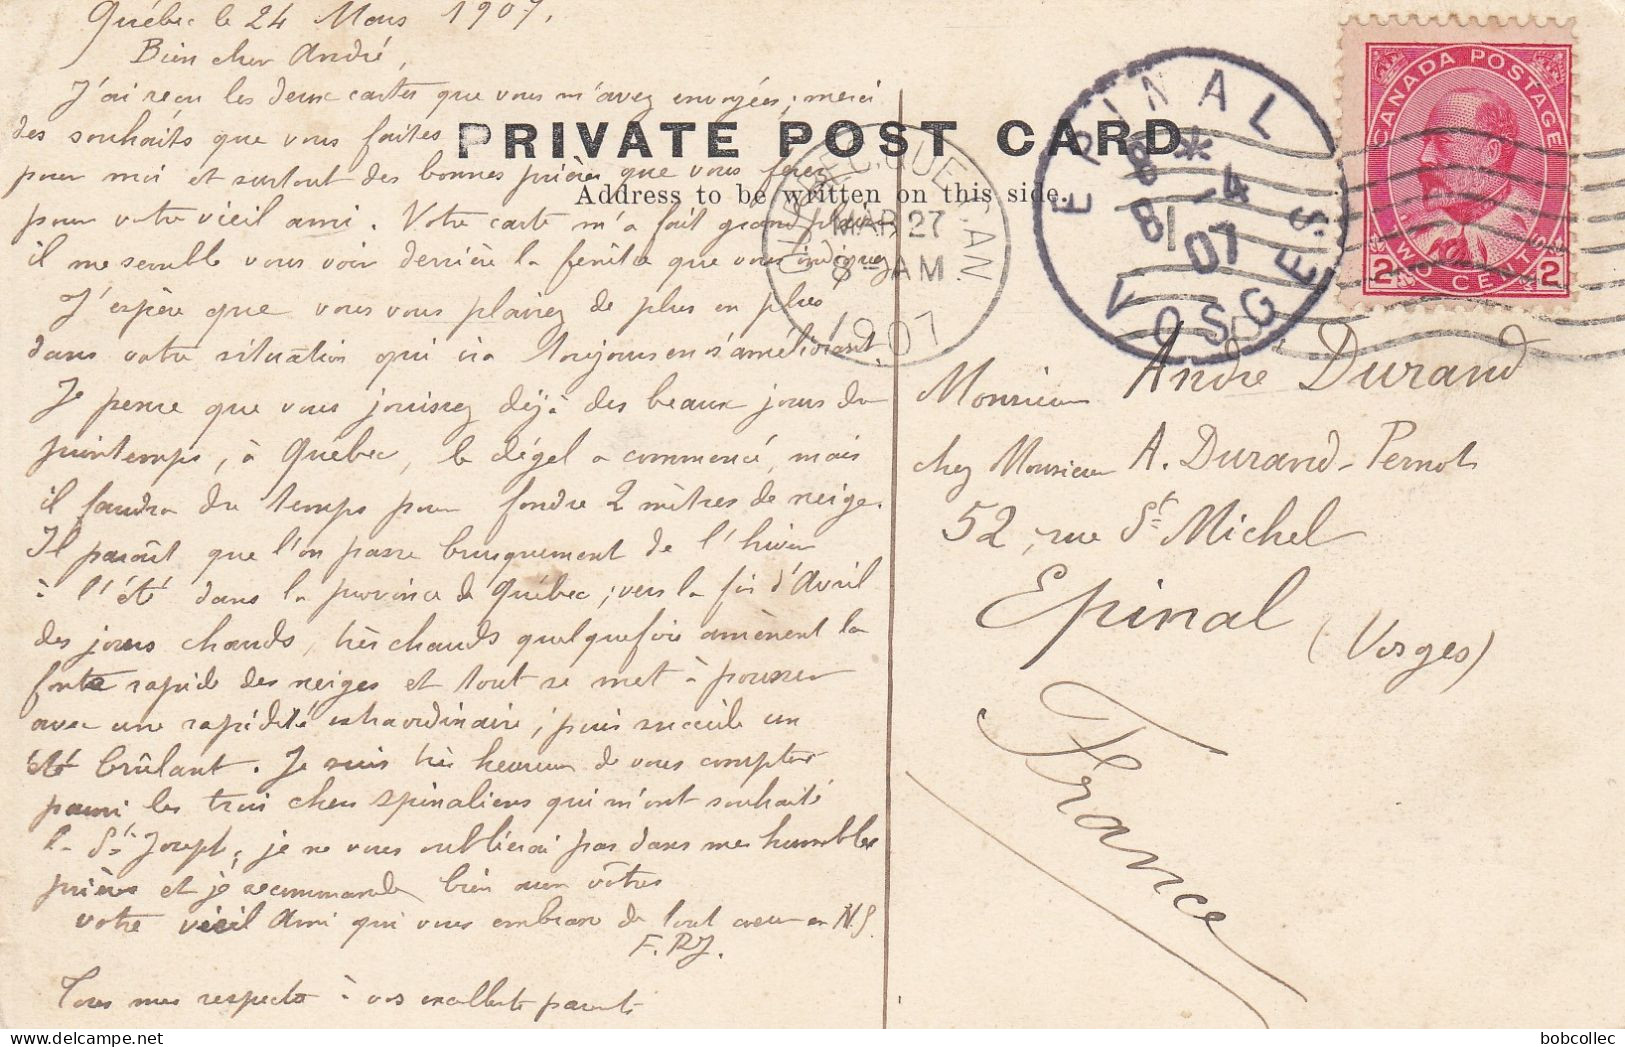 Québec le 24 Mars 1907.
Bien cher André,
J'ai reçu les deux cartes que vous m'avez envoyées ; merci
des souhaits que vous faites
pour moi et surtout des bonnes prières que vous ferez
pour votre vieil ami. Votre carte m'a fait grand plaisir,
il me semble vous voir derrière la fenêtre que vous indiquez
J'espère que vous vous plairez de plus en plus
dans votre situation qui ira toujours en s'améliorant.
Je pense que vous jouissez déjà des beaux jours du
printemps, à Québec, le dégel a commencé, mais
il faudra du temps pour fondre 2 mètres de neige.
Il paraît que l'on passe brusquement de l'hiver
à l'été dans la province de Québec ; vers la fin d'Avril
des jours chauds, très chauds quelquefois amènent la
fonte rapide des neiges et tout se met à pousser
avec une rapidité extraordinaire ; puis succède un
été brûlant. Je suis très heureux de vous compter
parmi les trois chers spinaliens qui m'ont souhaité
la St Joseph, je ne vous oublierai pas dans mes humbles
prières et je me recommande bien aux vôtres
votre vieil Ami qui vous embrasse de tout cœur en N.S.
F.P.J.
Tous mes respects à vos excellents parents
PRIVATE POST CARD
Address to be written on this side.
QUEBEC, QUE. CAN.
MAR 27
8 - AM
1907
EPINAL
8 * -4
07
VOSGES
CANADA POSTAGE
2 TWO CENTS 2
Monsieur André Durand
chez Monsieur A. Durand-Pernot
52, rue St Michel
Epinal
(Vosges)
France
bobcollec